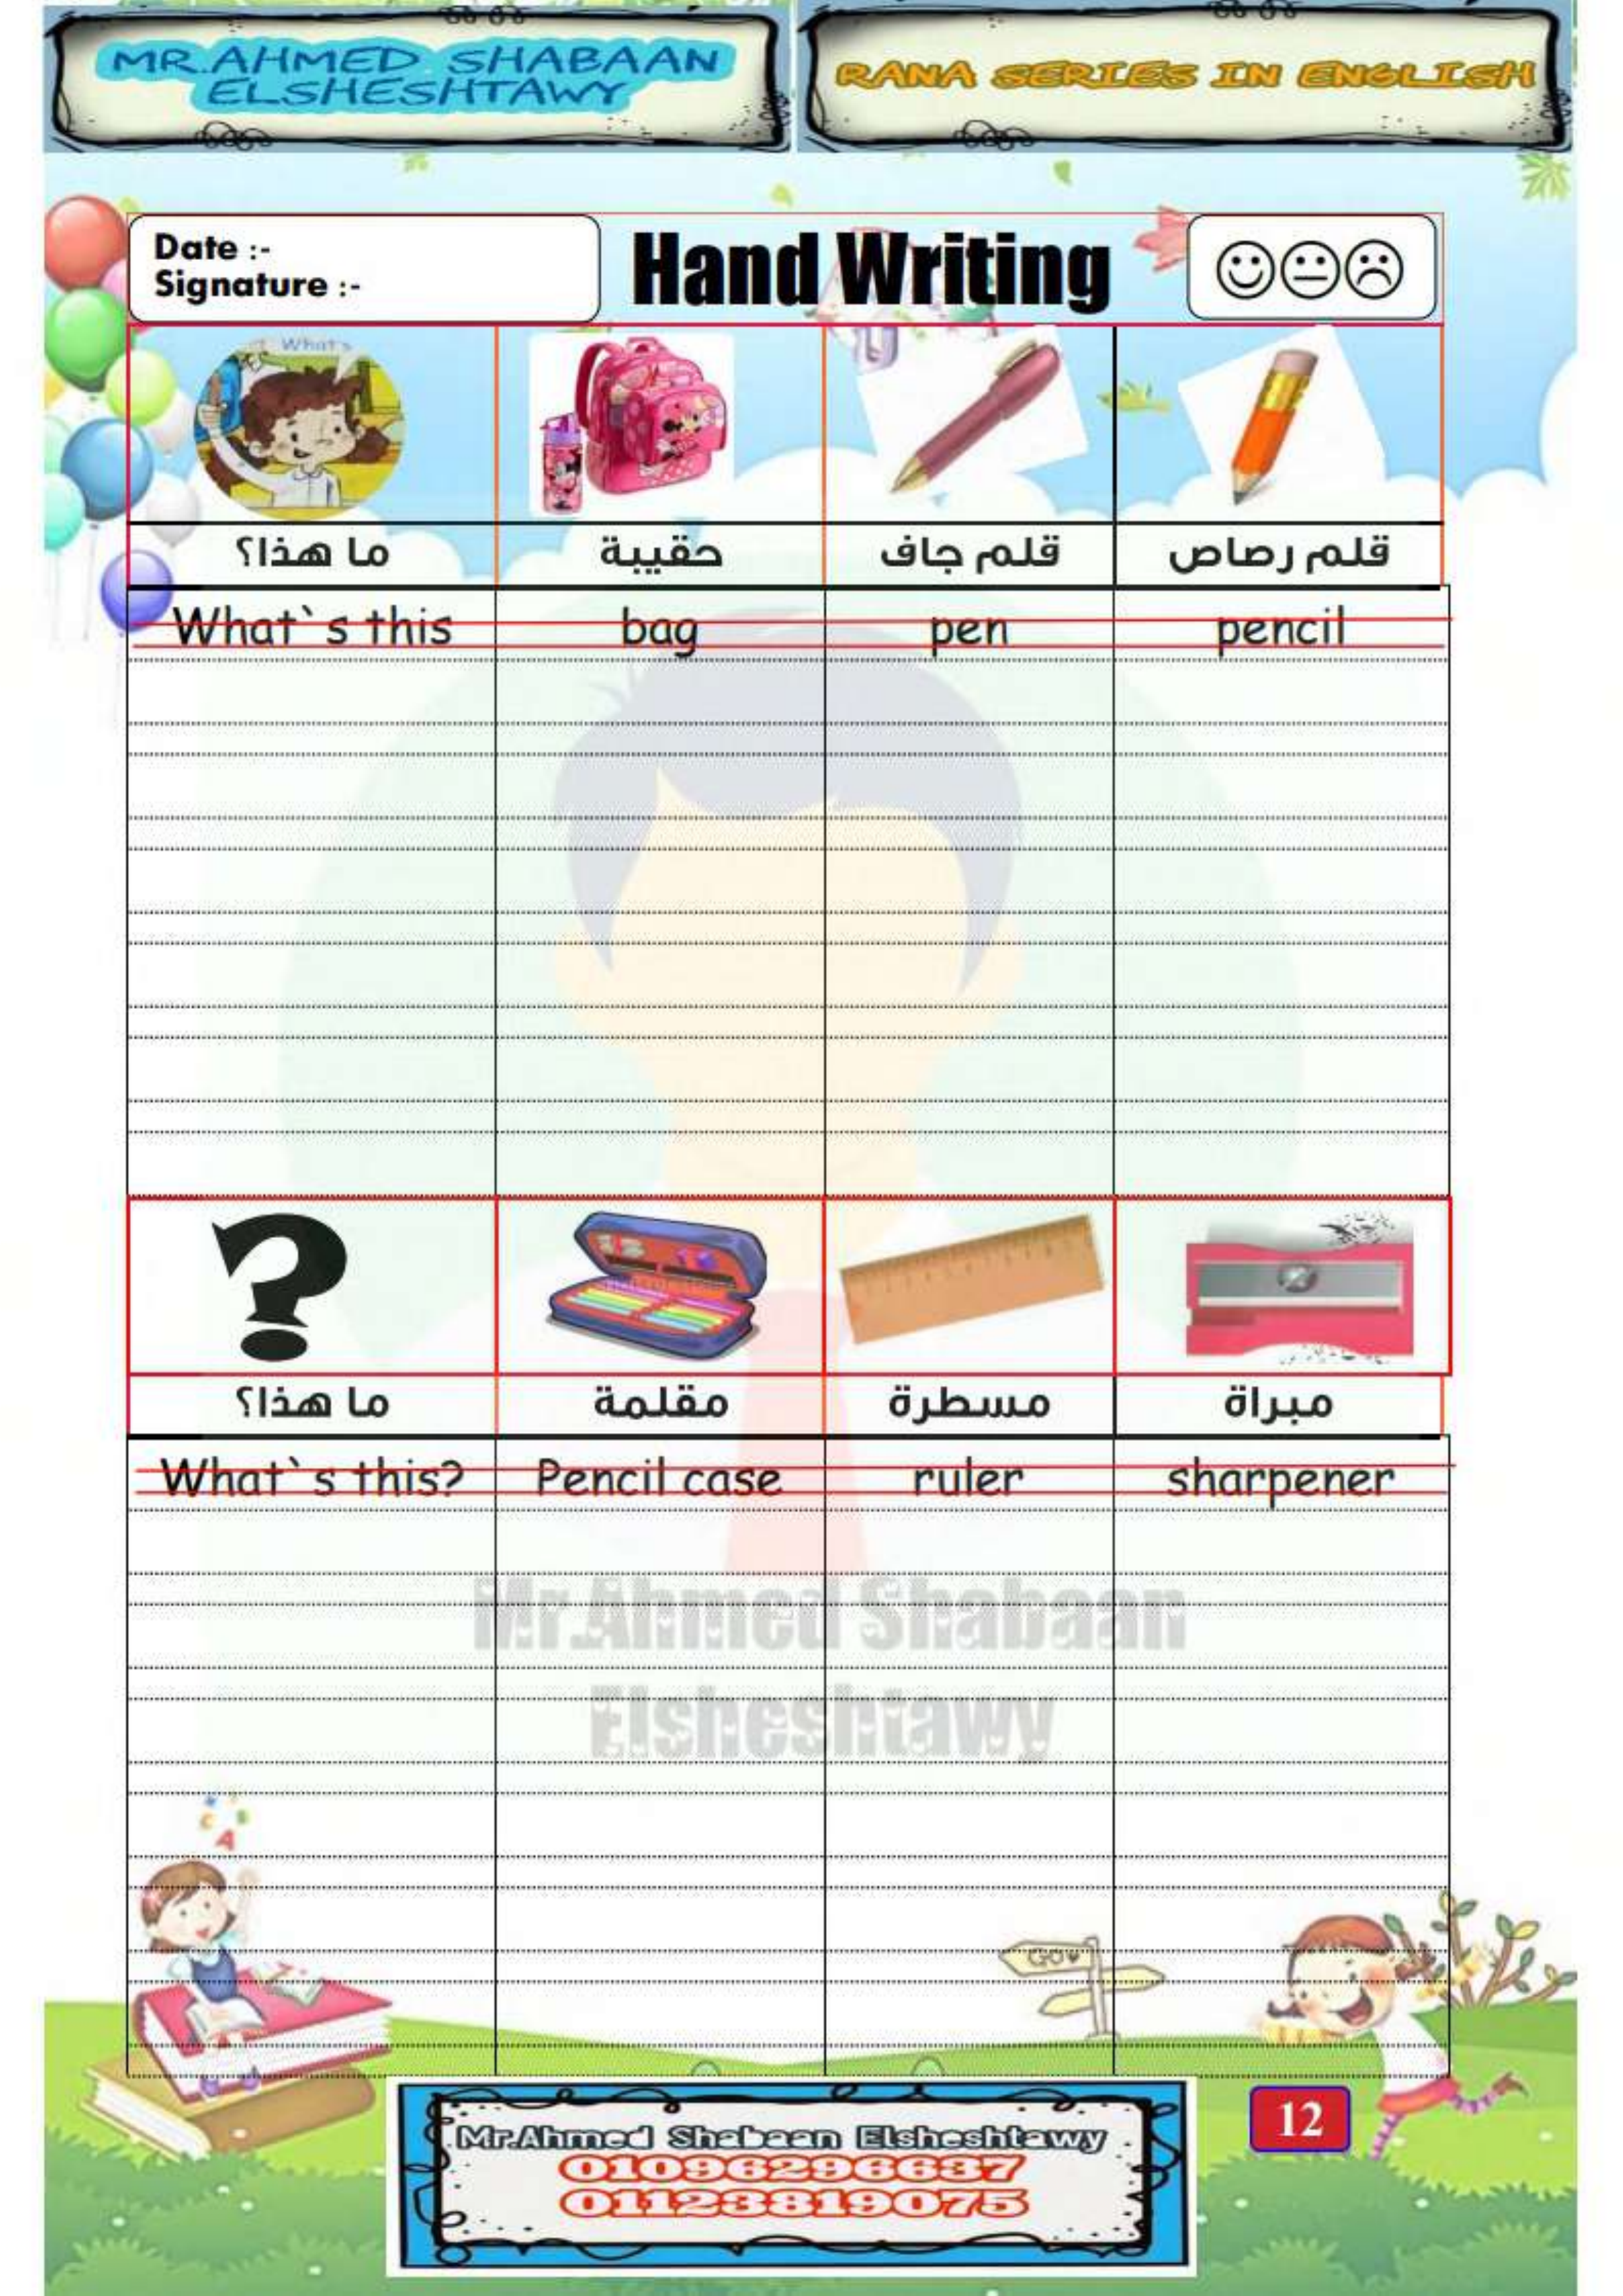 MR.AHMED SHABAAN
ELSHESHTAWY
RANA SERIES IN ENGLISH
Date :-
Signature :-
Hand Writing
What's
ما هذا؟ حقيبة قلم جاف قلم رصاص
What`s this bag pen pencil
?
ما هذا؟ مقلمة مسطرة مبراة
What`s this? Pencil case ruler sharpener
Mr.Ahmed Shabaan
Elsheshtawy
C B
A
GO
Mr.Ahmed Shabaan Elsheshtawy
01096296637
01123819075
12